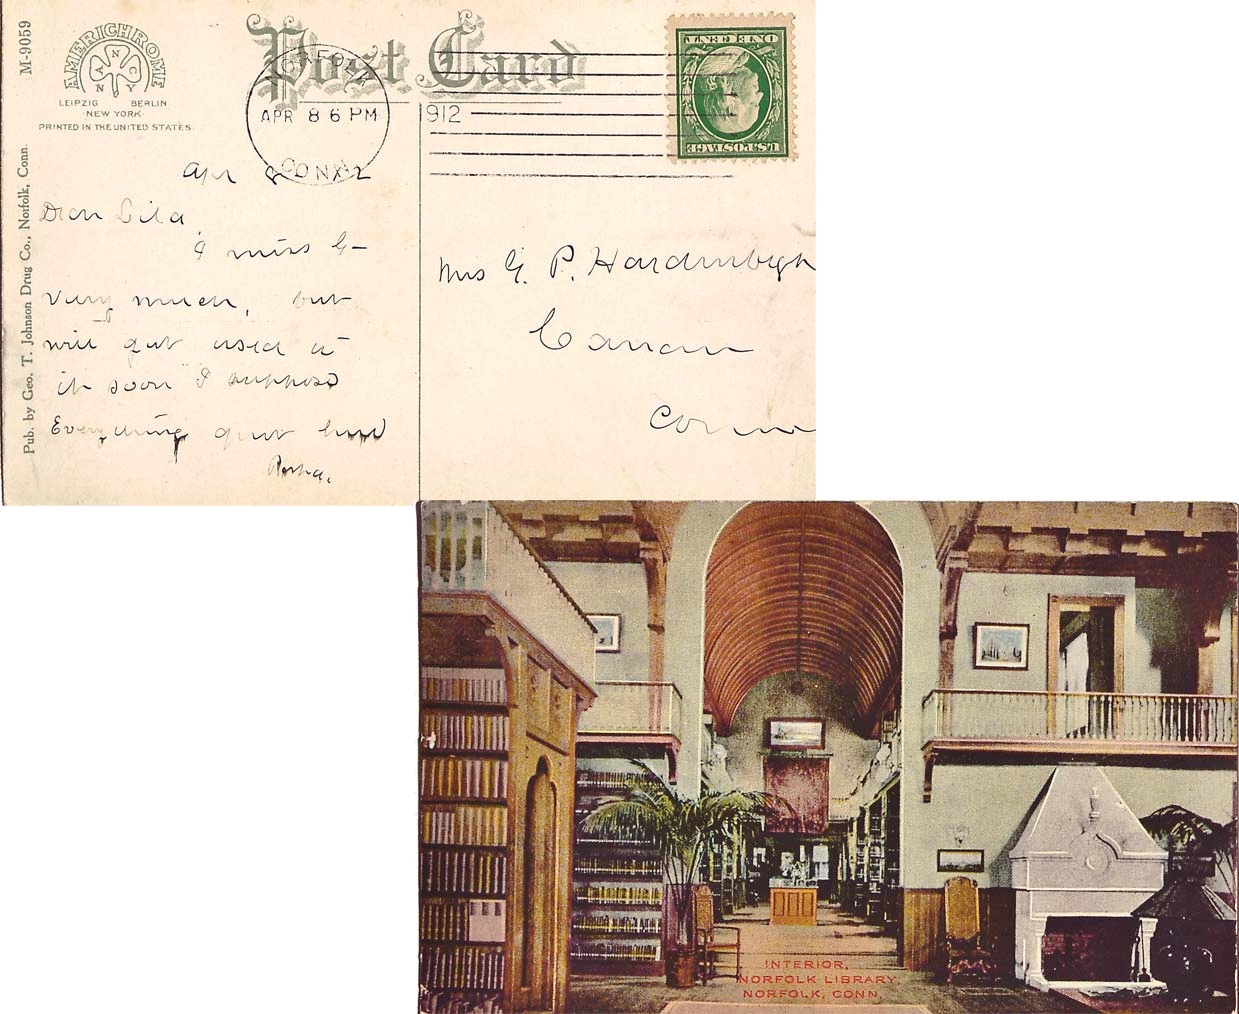 M-9059
AMERICHROME
N
A N
N Y
LEIPZIG BERLIN
NEW YORK
PRINTED IN THE UNITED STATES.
Pub. by Geo. T. Johnson Drug Co., Norfolk, Conn.
Post Card
NORFOLK
APR 8 6 PM
CONN.
1912
ONE CENT
U.S. POSTAGE
Apr 8
Dear
I miss G-
very much, but
will get used to
it soon I suppose
Everything quit
Mrs G. P. Hardenbergh
Canaan
Conn
INTERIOR,
NORFOLK LIBRARY,
NORFOLK, CONN.